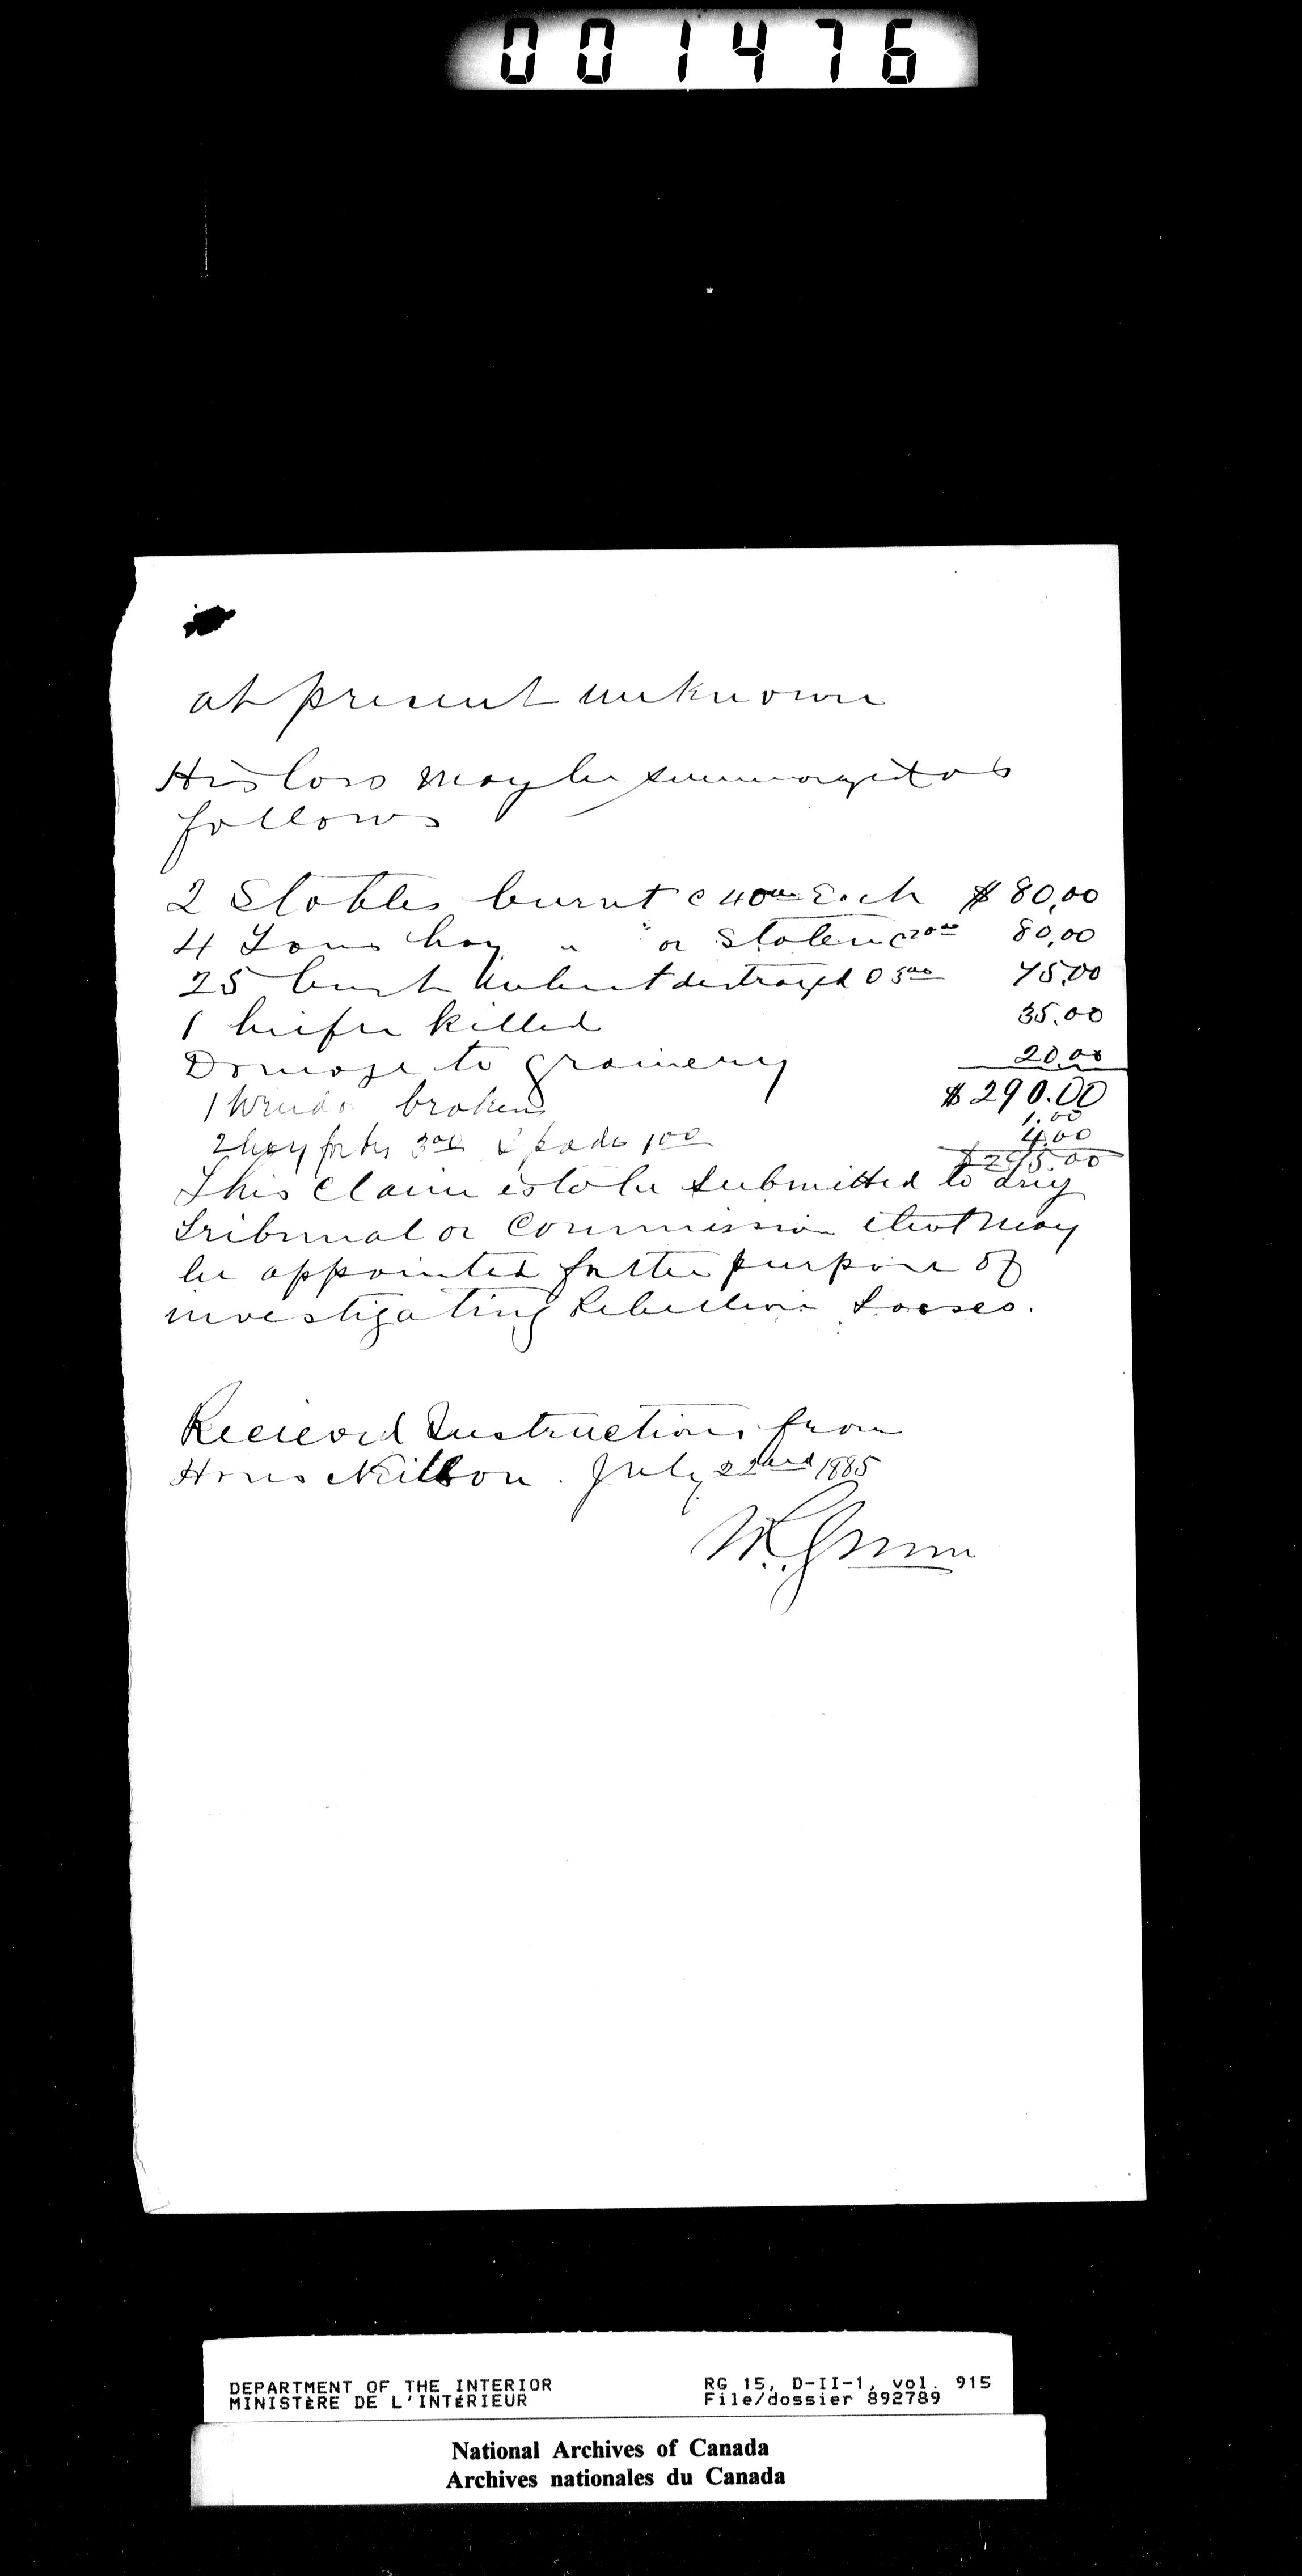 001476
at present unknown
His loss may be summarized as
follows
2 Stables burnt @ 40.00 Each $80.00
4 Tons hay " " or Stolen @ 20.00 80.00
25 bush Wheat destroyed @ 3.00 75.00
1 heifer killed 35.00
Damage to grainery 20.00
$290.00
1 Window broken 1.00
2 hay forks 3.00 Spade 1.00 4.00
$295.00
This claim is to be submitted to any
Tribunal or Commission that may
be appointed for the purpose of
investigating Rebellion Losses.
Recieved Instructions from
July 22nd 1885
DEPARTMENT OF THE INTERIOR RG 15, D-II-1, vol. 915
MINISTÈRE DE L'INTÉRIEUR File/dossier 892789
National Archives of Canada
Archives nationales du Canada